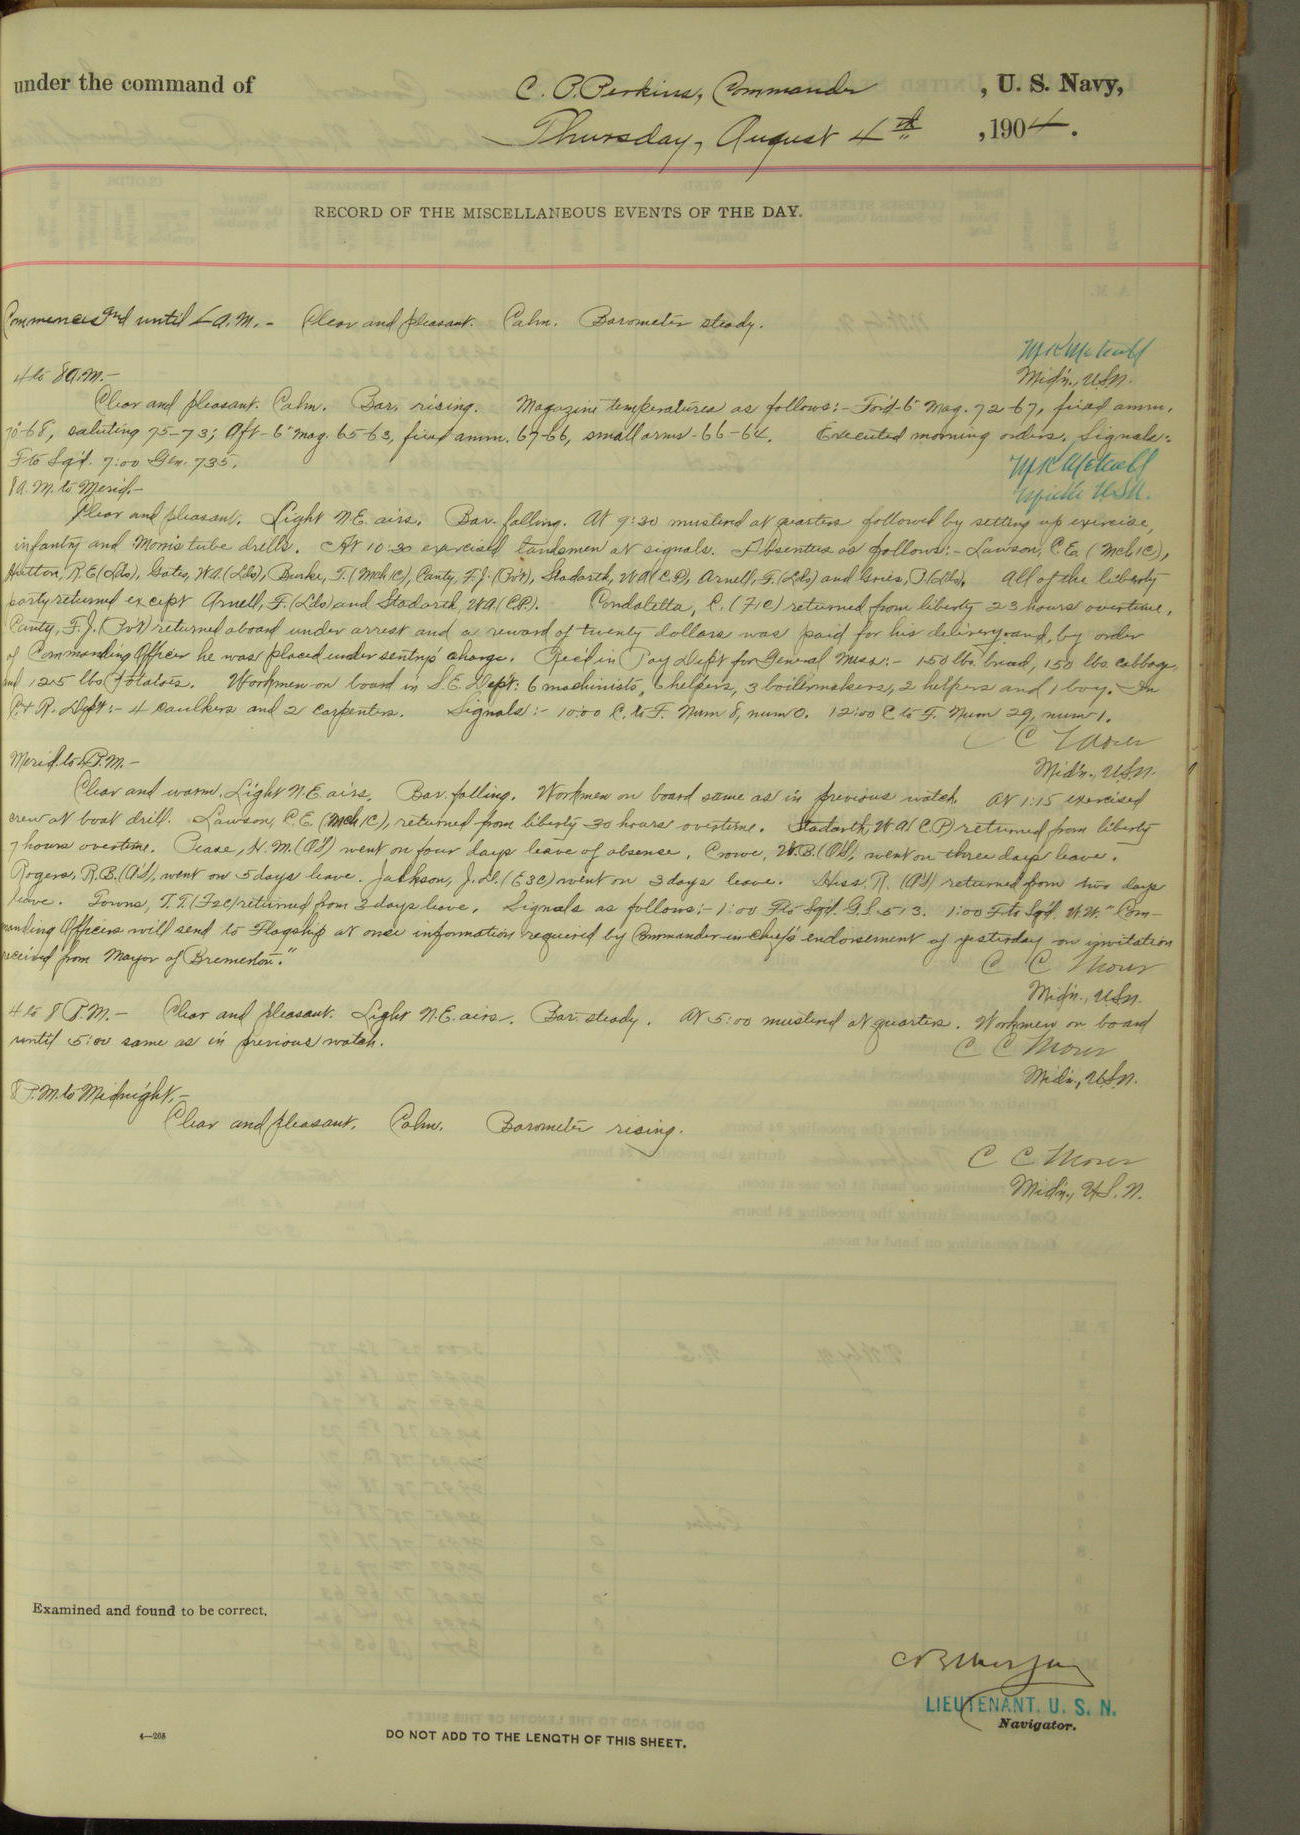 under the command of C. P. Perkins, Commander , U. S. Navy,
Thursday, August 4th , 1904.
RECORD OF THE MISCELLANEOUS EVENTS OF THE DAY.
Commences and until 4 A.M.- Clear and pleasant. Calm. Barometer steady.
M K Metcalf
Mid'n., U.S.N.
4 to 8 A.M.-
Clear and pleasant. Calm. Bar. rising. Magazine temperatures as follows:- For'd-6" Mag. 72-67, fixed amm.
70-68, saluting 75-73; Aft-6" mag. 65-63, fixed amm. 67-66, small arms-66-64. Executed morning orders. Signals:
F to Sq'd. 7:00 Gen. 735.
M K Metcalf
Midn U.S.N.
8 A.M. to Merid.-
Clear and pleasant. Light N.E. airs. Bar. falling. At 9:30 mustered at quarters followed by setting up exercise,
infantry and Morris tube drills. At 10:30 exercised landsmen at signals. Absentees as follows:- Lawson, C.E. (Mch1C),
Hutton, R.E. (Lds), Gates, W.A. (Lds), Burke, T. (Mch1C), Canty, F.J. (Pvt), Stadarth, W.A. (C.P.), Arnell, F. (Lds) and Gries, (Lds). All of the liberty
party returned except Arnell, F. (Lds) and Stadarth, W.A. (C.P.). Condaletta, C. (F1C) returned from liberty 23 hours overtime.
Canty, F.J. (Pvt) returned aboard under arrest and a reward of twenty dollars was paid for his delivery and, by order
of Commanding Officer he was placed under sentry's charge. Rec'd in Pay Dep't for General Mess:- 150 lbs. bread, 150 lbs. cabbage,
and 125 lbs potatoes. Workmen on board in S.E. Dept: 6 machinists, 6 helpers, 3 boilermakers, 2 helpers and 1 boy. In
C. & R. Dept:- 4 caulkers and 2 carpenters. Signals:- 10:00 C. to F. Num 8, num 0. 12:00 C to F. Num 29, num 1.
C C Moser
Mid'n., U.S.N.
Merid. to 4 P.M.-
Clear and warm. Light N.E. airs. Bar. falling. Workmen on board same as in previous watch. At 1:15 exercised
crew at boat drill. Lawson, C.E. (Mch1C), returned from liberty 30 hours overtime. Stadarth, W.A. (C.P.) returned from liberty
7 hours overtime. Pease, H.M. went on four days leave of absence. Crowe, W.B. went on three days leave.
Rogers, R.B. went on 5 days leave. Jackson, J.H. (E3C) went on 3 days leave. Hiss, R. returned from two days
leave. Towns, T.T. (F2C) returned from 3 days leave. Signals as follows:- 1:00 F to Sq'd. G.S. 513. 1:00 F to Sq'd. W.W. "Com-
manding Officers will send to Flagship at once information required by Commander-in-Chief's endorsement of yesterday on invitation
received from Mayor of Bremerton."
C C Moser
Mid'n., U.S.N.
4 to 8 P.M.- Clear and pleasant. Light N.E. airs. Bar. steady. At 5:00 mustered at quarters. Workmen on board
until 5:00 same as in previous watch.
C C Moser
Mid'n., U.S.N.
8 P.M. to Midnight.-
Clear and pleasant. Calm. Barometer rising.
C C Moser
Mid'n., U.S.N.
Examined and found to be correct.
LIEUTENANT. U. S. N.
Navigator.
4—208
DO NOT ADD TO THE LENGTH OF THIS SHEET.